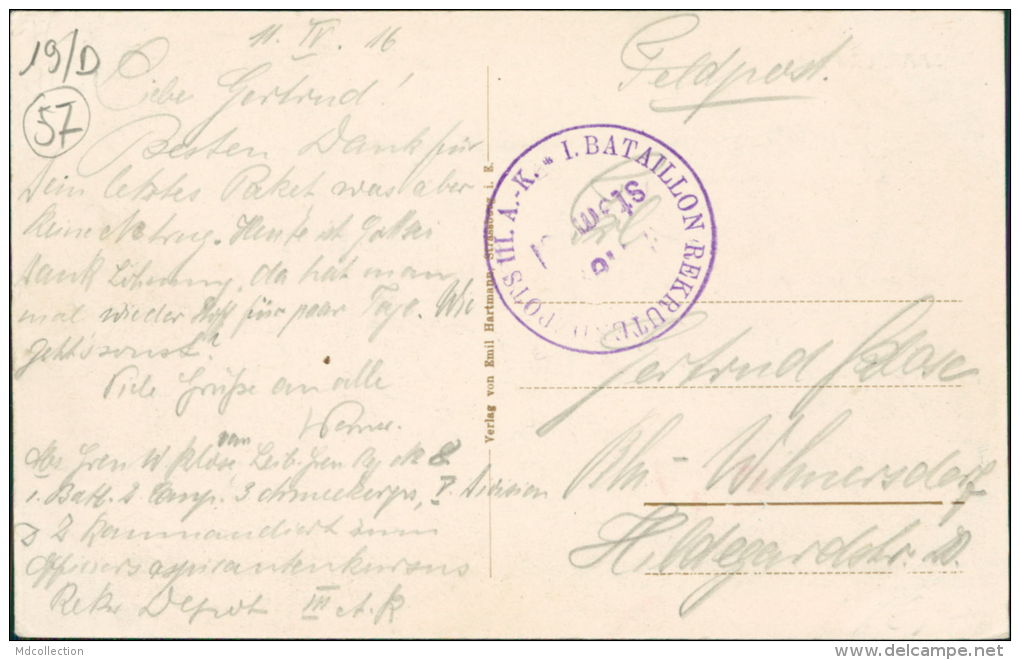 19/D
57
11. IV. 16
Liebe Gertrud!
Besten Dank für
Dein letztes Paket was aber
keine Not trug. Heute ist Gott sei
dank Löhnung, da hat man
mal wieder Stoff für paar Tage. Wie
gehts sonst?
Viele Grüße an alle
Werner.
Abs Gren W. Klose vom Leib. Gren Reg № 8.
1. Batl. 2 Comp. 3 Division
z Z Kommandiert zum
Offiziersaspirantenkursus
Rekr Depot III A. K
Verlag von Emil Hartmann, Strassburg i. E.
Feldpost.
* I. BATAILLON REKRUTEN-DEPOTS III. A.-K.
Frl
Gertrud Klose
Bln - Wilmersdorf
Hildegardstr.
Mdcollection
www.delcampe.net